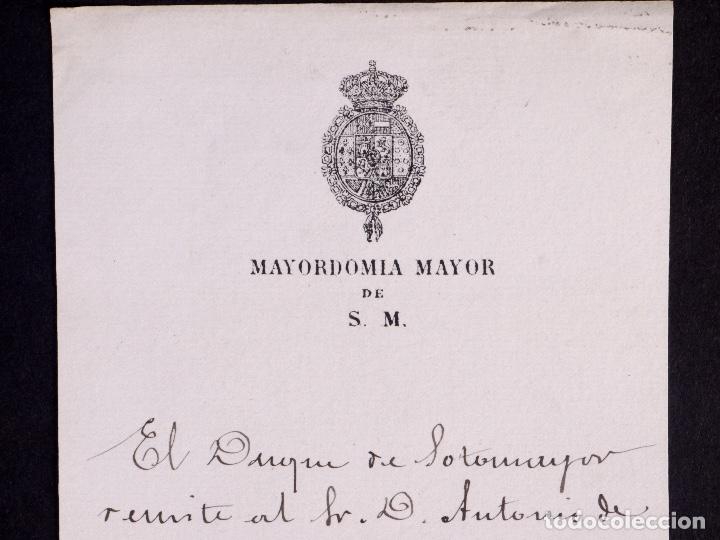 MAYORDOMIA MAYOR
DE
S. M.
El Duque de Sotomayor
remite al Sr. D. Antonio de
todocoleccion